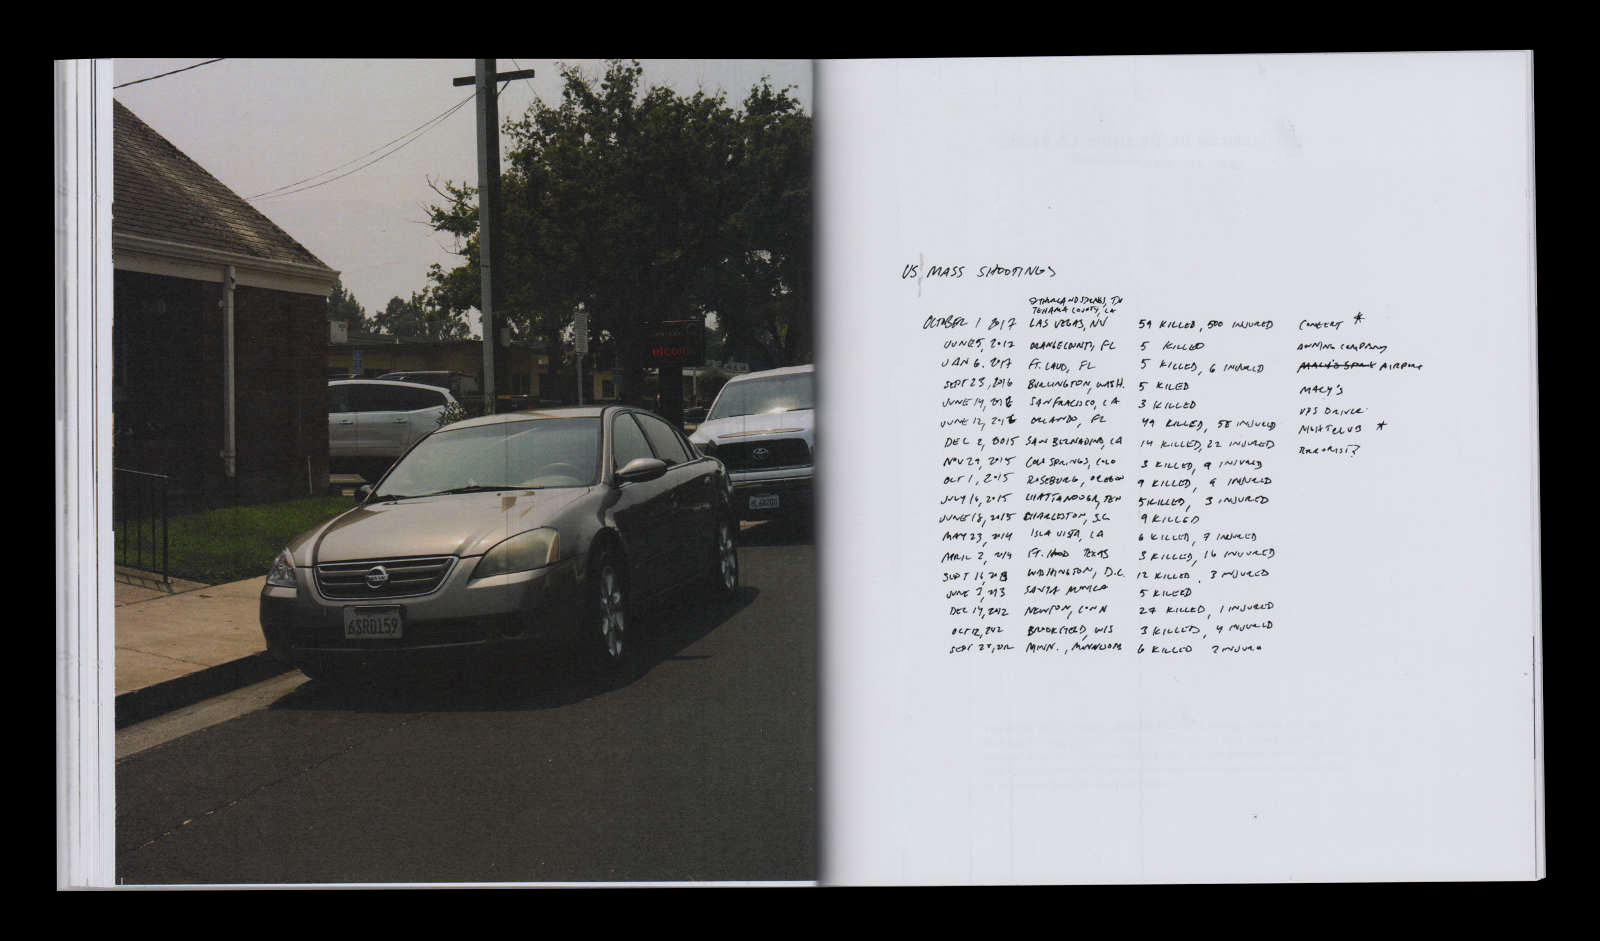 elcom
6SRD159
US MASS SHOOTINGS
SUTHERLAND SPRINGS, TX
TEHAMA COUNTY, CA
OCTOBER 1 2017 LAS VEGAS, NV 59 KILLED, 500 INJURED CONCERT *
JUNE 5, 2017 ORANGE COUNTY, FL 5 KILLED AWNING COMPANY
JAN 6, 2017 FT. LAUD, FL 5 KILLED, 6 INJURED AIRPORT
SEPT 23, 2016 BURLINGTON, WASH. 5 KILED MACY'S
JUNE 14, 2016 SAN FRACISCO, CA 3 KILLED UPS DRIVER
JUNE 12, 2016 ORLANDO, FL 49 KILLED, 58 INJURED NIGHTCLUB *
DEC 2, 2015 SAN BERNADINO, CA 14 KILLED, 22 INJURED TERRORIST?
NOV 29, 2015 COLO SPRINGS, COLO 3 KILLED, 9 INJURED
OCT 1, 2015 ROSEBURG, OREGON 9 KILLED, 9 INJURED
JULY 16, 2015 CHATTANOOGA, TEN 5 KILLED, 3 INJURED
JUNE 18, 2015 CHARLESTON, S.C 9 KILLED
MAY 23, 2014 ISLA VISTA, CA 6 KILLED, 7 INJURED
APRIL 2, 2014 FT. HOOD TEXAS 3 KILLED, 16 INJURED
SEPT 16, 2013 WASHINGTON, D.C. 12 KILLED, 3 INJURED
JUNE 7, 2013 SANTA MONICA 5 KILLED
DEC 14, 2012 NEWTON, CONN 27 KILLED, 1 INJURED
OCT 12, 2012 BROOKFIELD, WIS 3 KILLED, 4 INJURED
SEPT 28, 2012 MINN., MINNESOTA 6 KILLED 2 INJURED